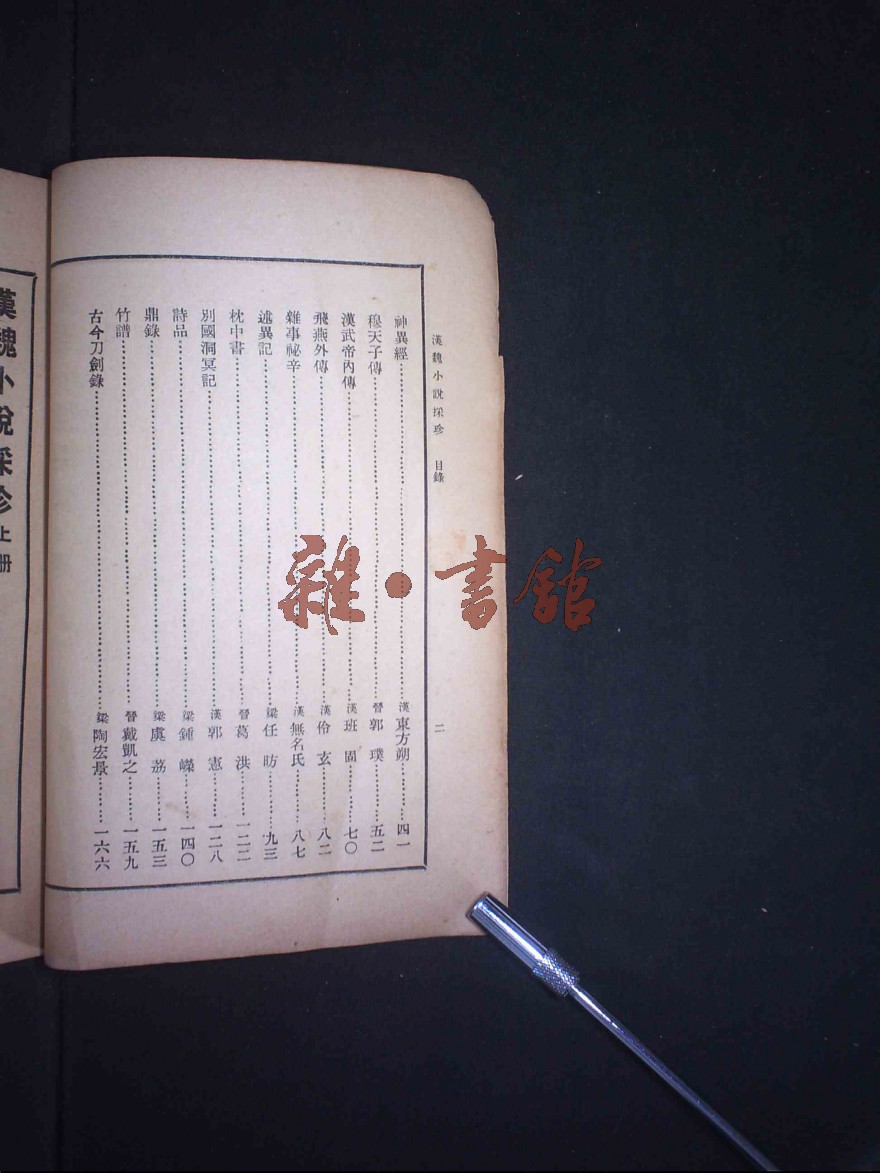 漢魏小說採珍　目錄
二
神異經……漢東方朔……四一
穆天子傳……晉郭　璞……五二
漢武帝內傳……漢班　固……七〇
飛燕外傳……漢伶　玄……八二
雜事祕辛……漢無名氏……八七
述異記……梁任　昉……九三
枕中書……晉葛　洪……一二二
別國洞冥記……漢郭　憲……一二八
詩品……梁鍾　嶸……一四〇
鼎錄……梁虞　荔……一五三
竹譜……晉戴凱之……一五九
古今刀劍錄……梁陶宏景……一六六
漢魏小說採珍上册
雜·書館